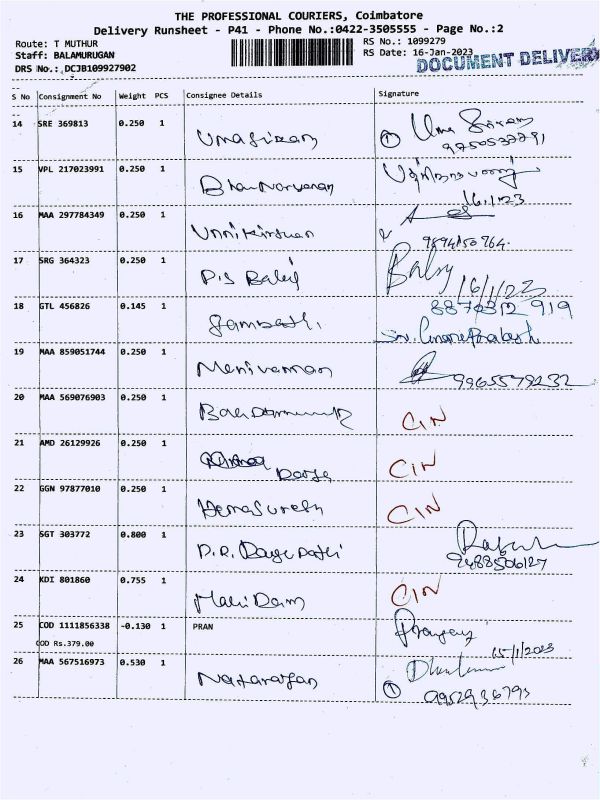 THE PROFESSIONAL COURIERS, Coimbatore
Delivery Runsheet - P41 - Phone No.:0422-3505555 - Page No.:2
Route: T MUTHUR
RS No.: 1099279
Staff: BALAMURUGAN
RS Date: 16-Jan-2023
DRS No.: DCJB109927902
DOCUMENT DELIVERY
S No Consignment No Weight PCS Consignee Details Signature
14 SRE 369813 0.250 1 Umasiram Uma Sriram
9750537791
15 VPL 217023991 0.250 1
16.1.23
16 MAA 297784349 0.250 1
9894150764.
17 SRG 364323 0.250 1 P.S Balaji Balaji 16/1/23
18 GTL 456826 0.145 1 8870312 919
19 MAA 859051744 0.250 1 Manivannan 9965579232
20 MAA 569076903 0.250 1 CIN
21 AMD 26129926 0.250 1 CIN
22 GGN 97877010 0.250 1 Hemasuresh CIN
23 SGT 303772 0.800 1
9488506127
24 KDI 801860 0.755 1 CIN
25 COD 1111856338 -0.130 1 PRAN
COD Rs.379.00 15/1/2023
26 MAA 567516973 0.530 1 Natarajan
9952936793